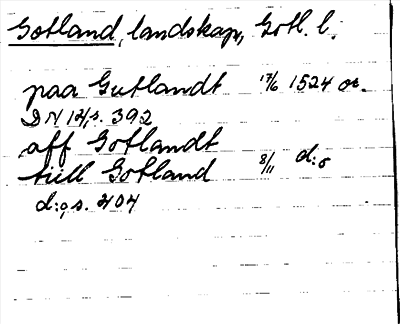 Gotland, landskap, Gotl. l.
paa Gutlandt 17/6 1524 or.
DN 14, s. 392
aff Gotlandt
till Gotland 8/11 d:o
d:o, s. 404